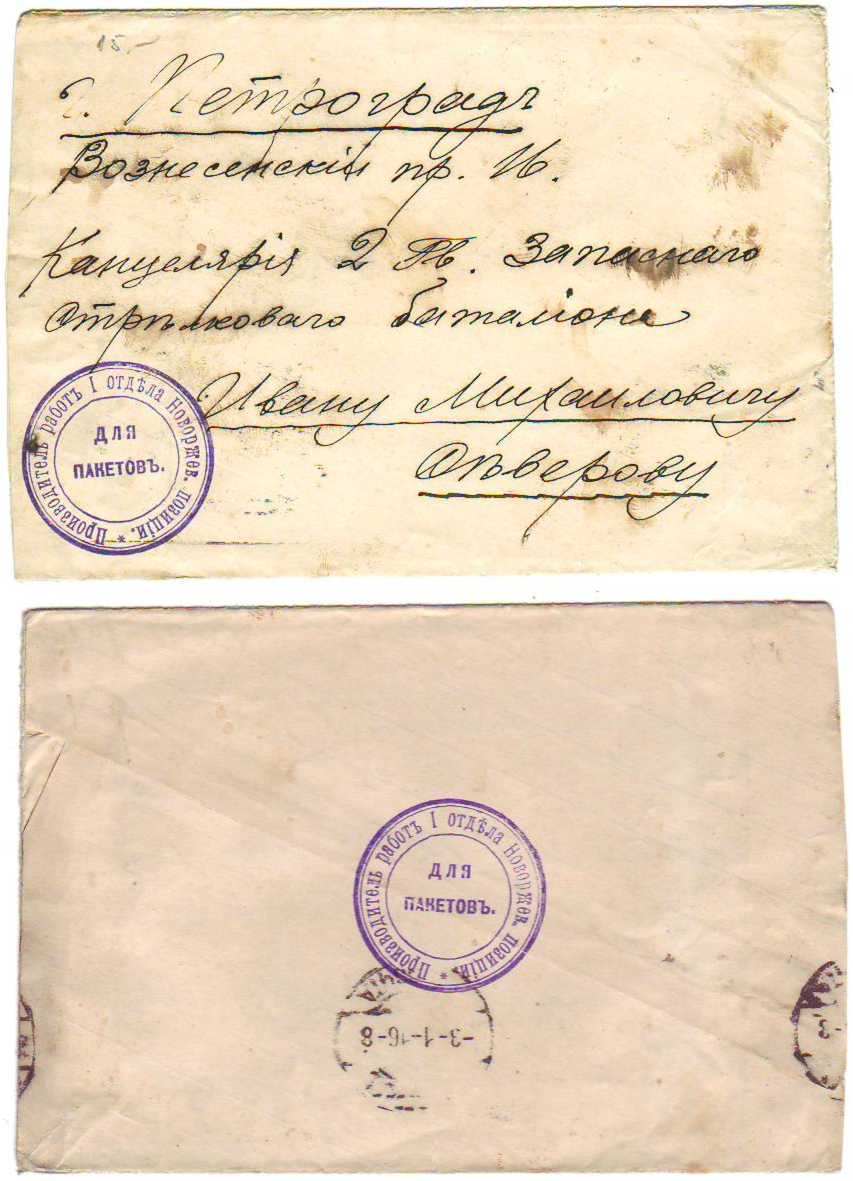 15.-
г. Петроградъ
Вознесенскій пр. 16.
Канцелярія 2 Гв. Запаснаго
Стрѣлковаго баталіона
Ивану Михаиловичу
Сѣверову
Производитель работъ I отдѣла Новоржев. позиціи. *
ДЛЯ
ПАКЕТОВЪ.
Производитель работъ I отдѣла Новоржев. позиціи. *
ДЛЯ
ПАКЕТОВЪ.
-3-1-16-8